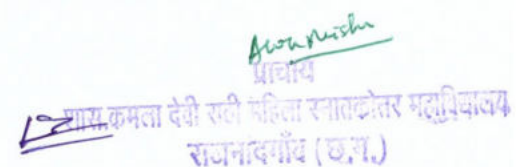 प्राचार्य
शास. कमला देवी राठी महिला स्नातकोत्तर महाविद्यालय
राजनांदगाँव (छ.ग.)